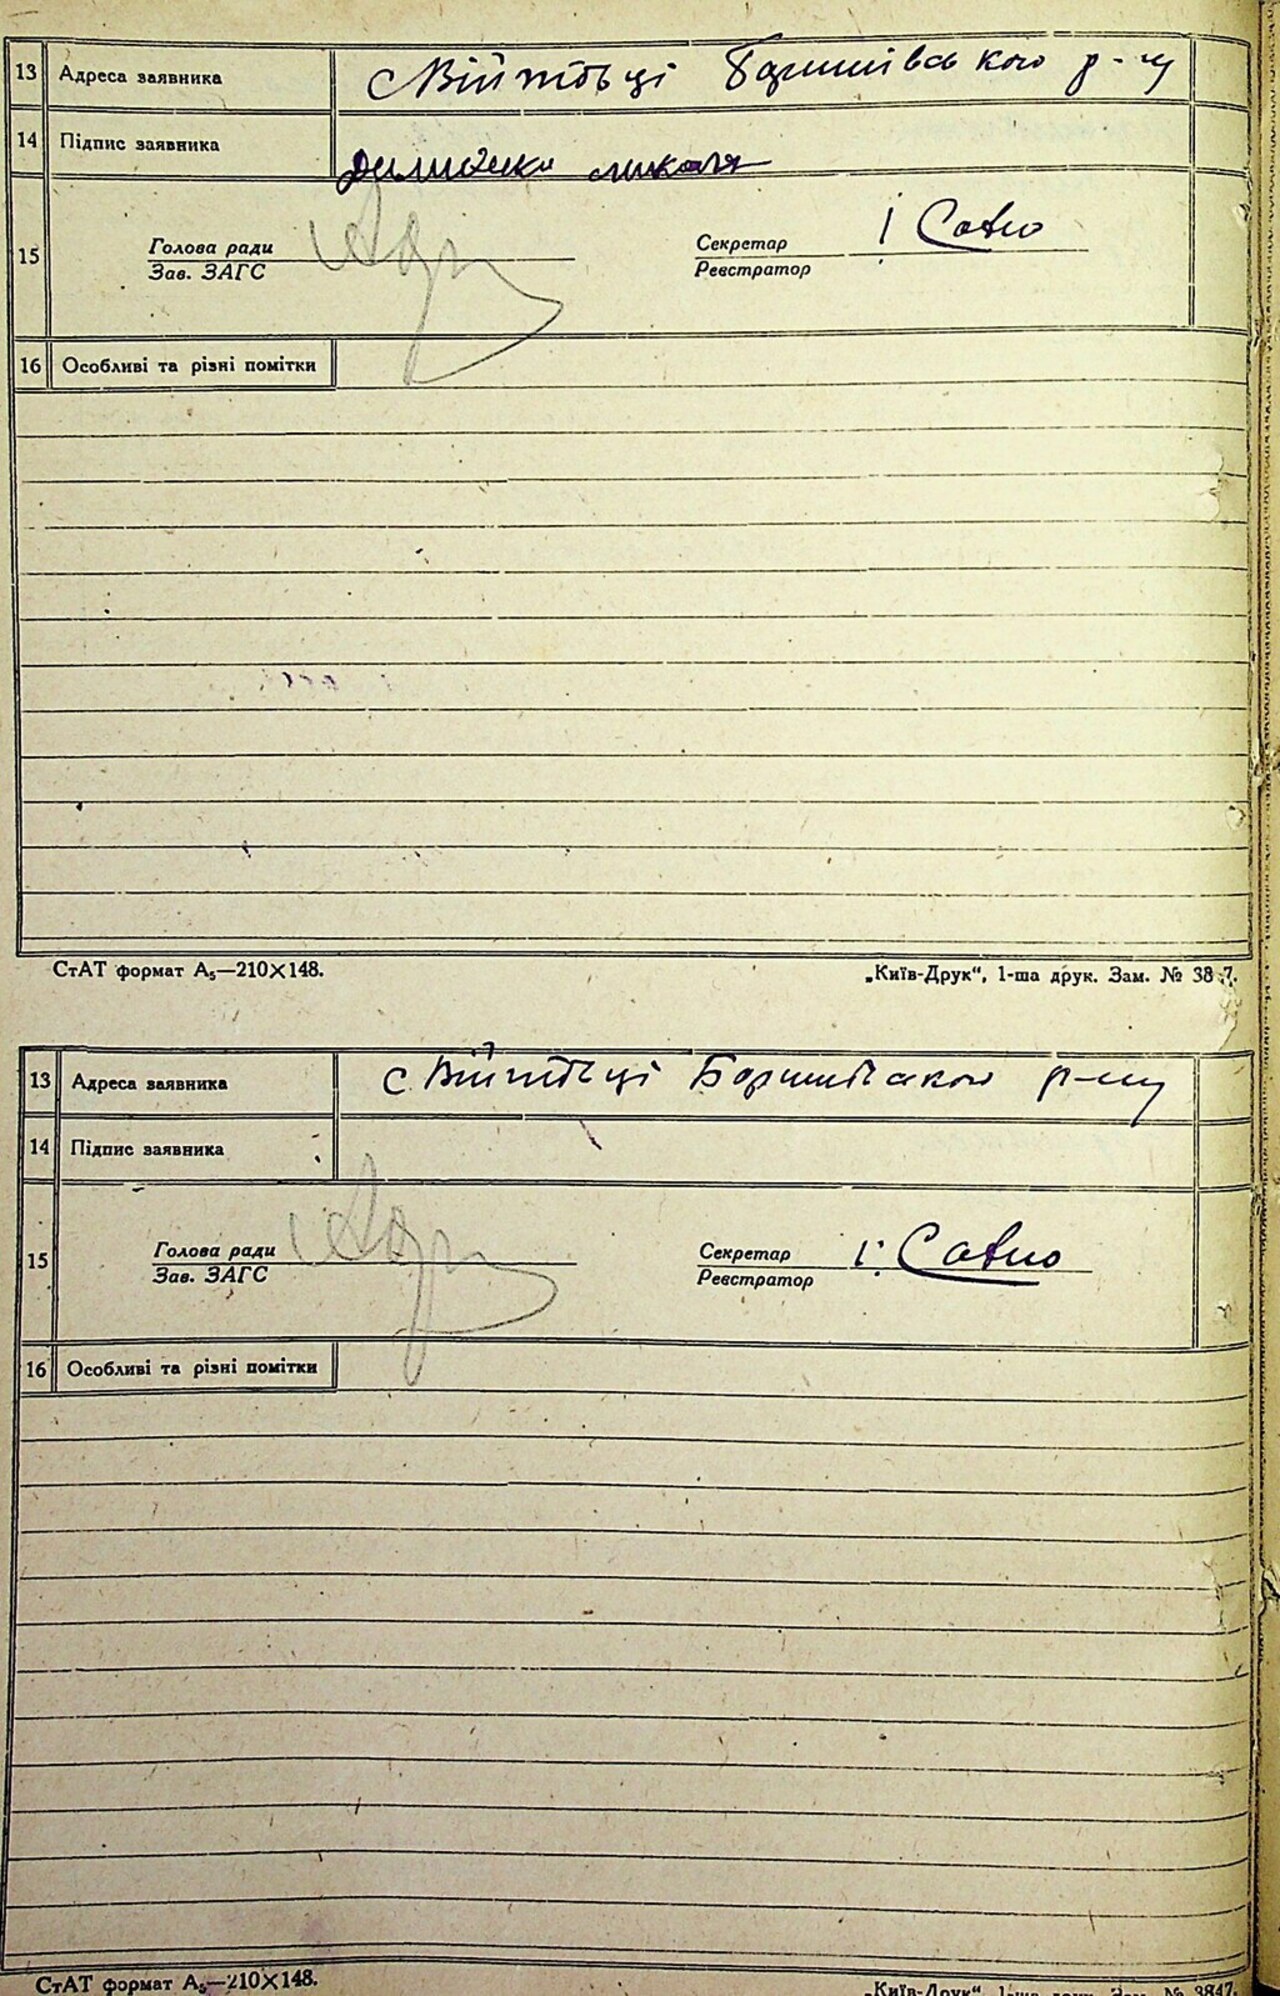 13 Адреса заявника с Війтовці Баришівського р-ну
14 Підпис заявника микола
15 Голова ради Секретар І Савно
Зав. ЗАГС Реєстратор
16 Особливі та різні помітки
СтАТ формат А₅—210×148. „Київ-Друк“, 1-ша друк. Зам. №
13 Адреса заявника с Війтовці Баришівського р-ну
14 Підпис заявника
15 Голова ради Секретар І. Савно
Зав. ЗАГС Реєстратор
16 Особливі та різні помітки
СтАТ формат А₅—210×148. „Київ-Друк“, 1-ша друк. Зам. № 3847.